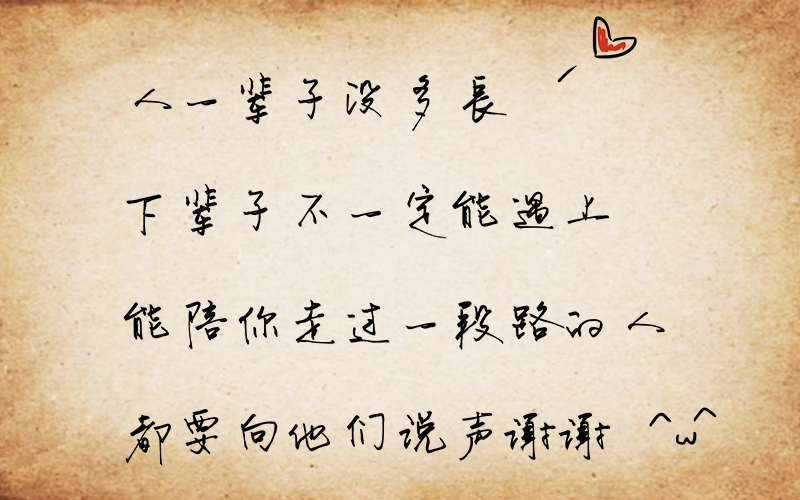 人一辈子没多長
下辈子不一定能遇上
能陪你走过一段路的人
都要向他们说声谢谢 ^ω^